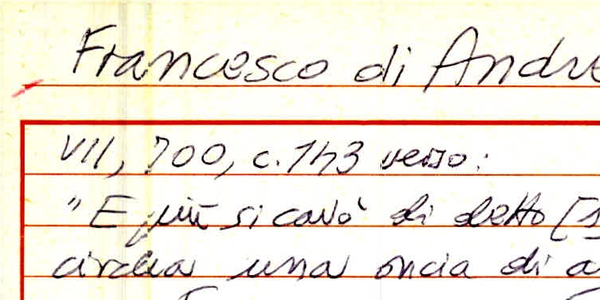 Francesco di Andre
VII, 700, c. 143 verso:
"E più si cavò di detto [
circha una oncia di a